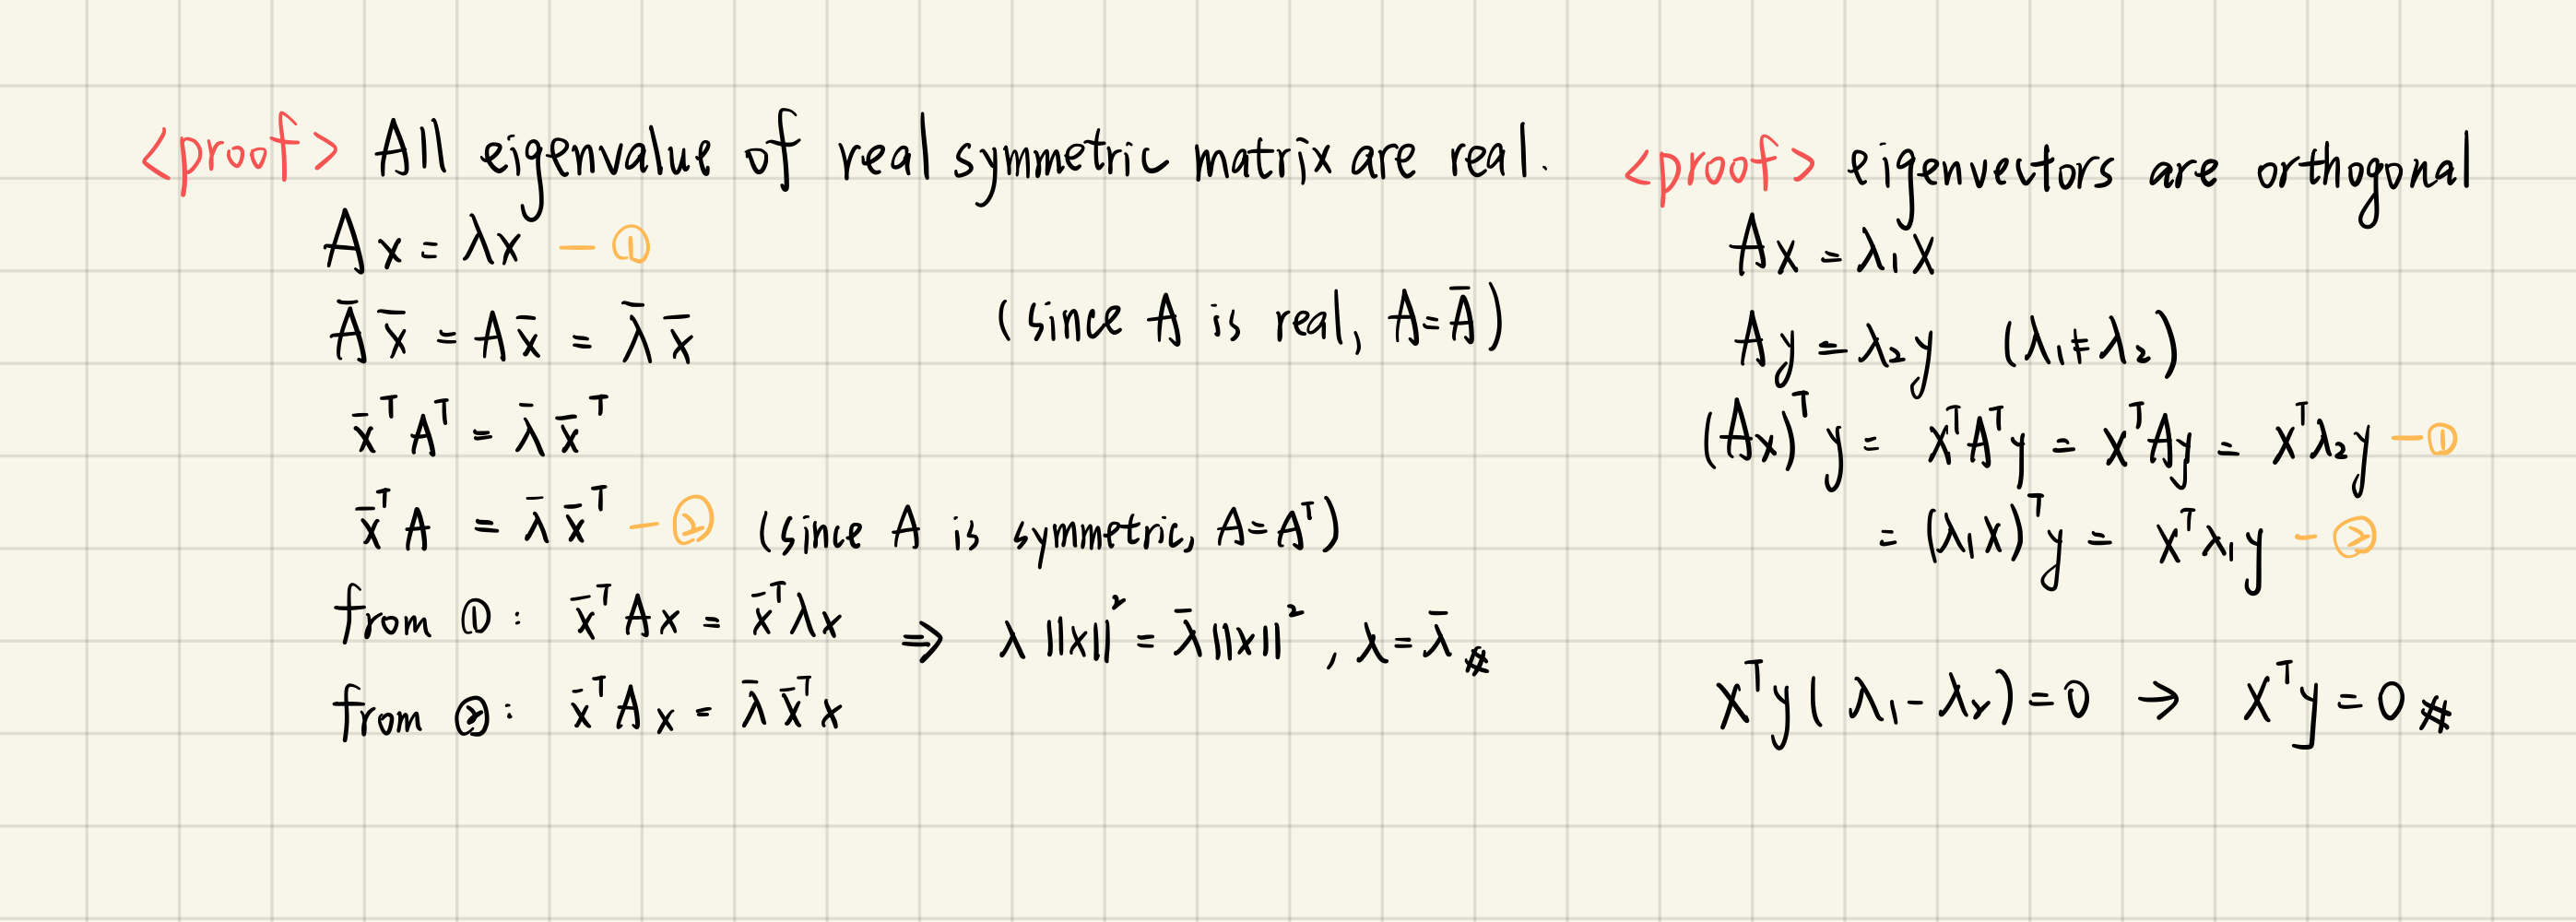 <proof> All eigenvalue of real symmetric matrix are real.
Ax = λx — ①
A̅ x̅ = A x̅ = λ̅ x̅ (since A is real, A = A̅)
x̅ᵀ Aᵀ = λ̅ x̅ᵀ
x̅ᵀ A = λ̅ x̅ᵀ — ② (since A is symmetric, A = Aᵀ)
from ①: x̅ᵀ A x = x̅ᵀ λ x ⇒ λ ||x||² = λ̅ ||x||², λ = λ̅ #
from ②: x̅ᵀ A x = λ̅ x̅ᵀ x
<proof> eigenvectors are orthogonal
Ax = λ₁x
Ay = λ₂y (λ₁ ≠ λ₂)
(Ax)ᵀ y = xᵀAᵀy = xᵀAy = xᵀλ₂y — ①
= (λ₁x)ᵀ y = xᵀλ₁y — ②
xᵀy (λ₁ - λ₂) = 0 → xᵀy = 0 #